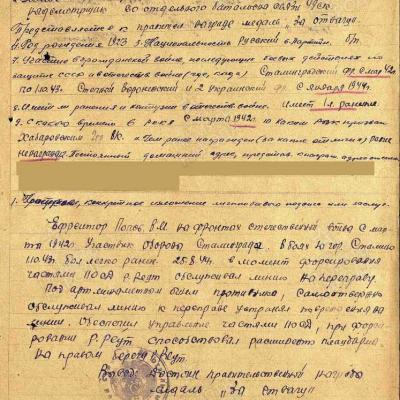 надсмотрщик 50 отдельного батальона связи
Представляется к правител. награде медаль "За отвагу"
4. Год рождения 1923 5. Национальность Русский 6. Партийн. б/п.
7. Участие в гражданской войне, последующих боевых действиях по
защите СССР и отечествен. войне (где, когда) Сталинградский фр. с мая 42г.
по 1.10.43. Степной Воронежский и 2 Украинский фр. с января 1944г.
8. Имеет ли ранения и контузии в отечествен. войне. Имеет 1 ранение
9. С какого времени в РККА С марта 1942г. 10 каким РВК призван
Хабаровским РВК. Чем ранее награжден (за какие отличия) Ранее
ненагражд. Постоянный домашний адрес
1. Краткое, конкретное изложение личного боевого подвига или заслуг
Ефрейтор Попов В.М. на фронтах отечественной войны с мар-
та 1942г. Участник обороны Сталинграда. В боях
1.10.43 был легко ранен. 25.8.44 в момент форсирования
частями р. Реут обслуживал линию на переправу.
Под артминометным огнем противника, самоотвержено
обслуживал линию к переправе устраняя
линии. Обеспечил управление частями при форси-
ровании р. Реут способствовал расширению плацдарма
на правом берегу р. Реут.
Вывод: Достоин правительственной награды
медаль "За отвагу"